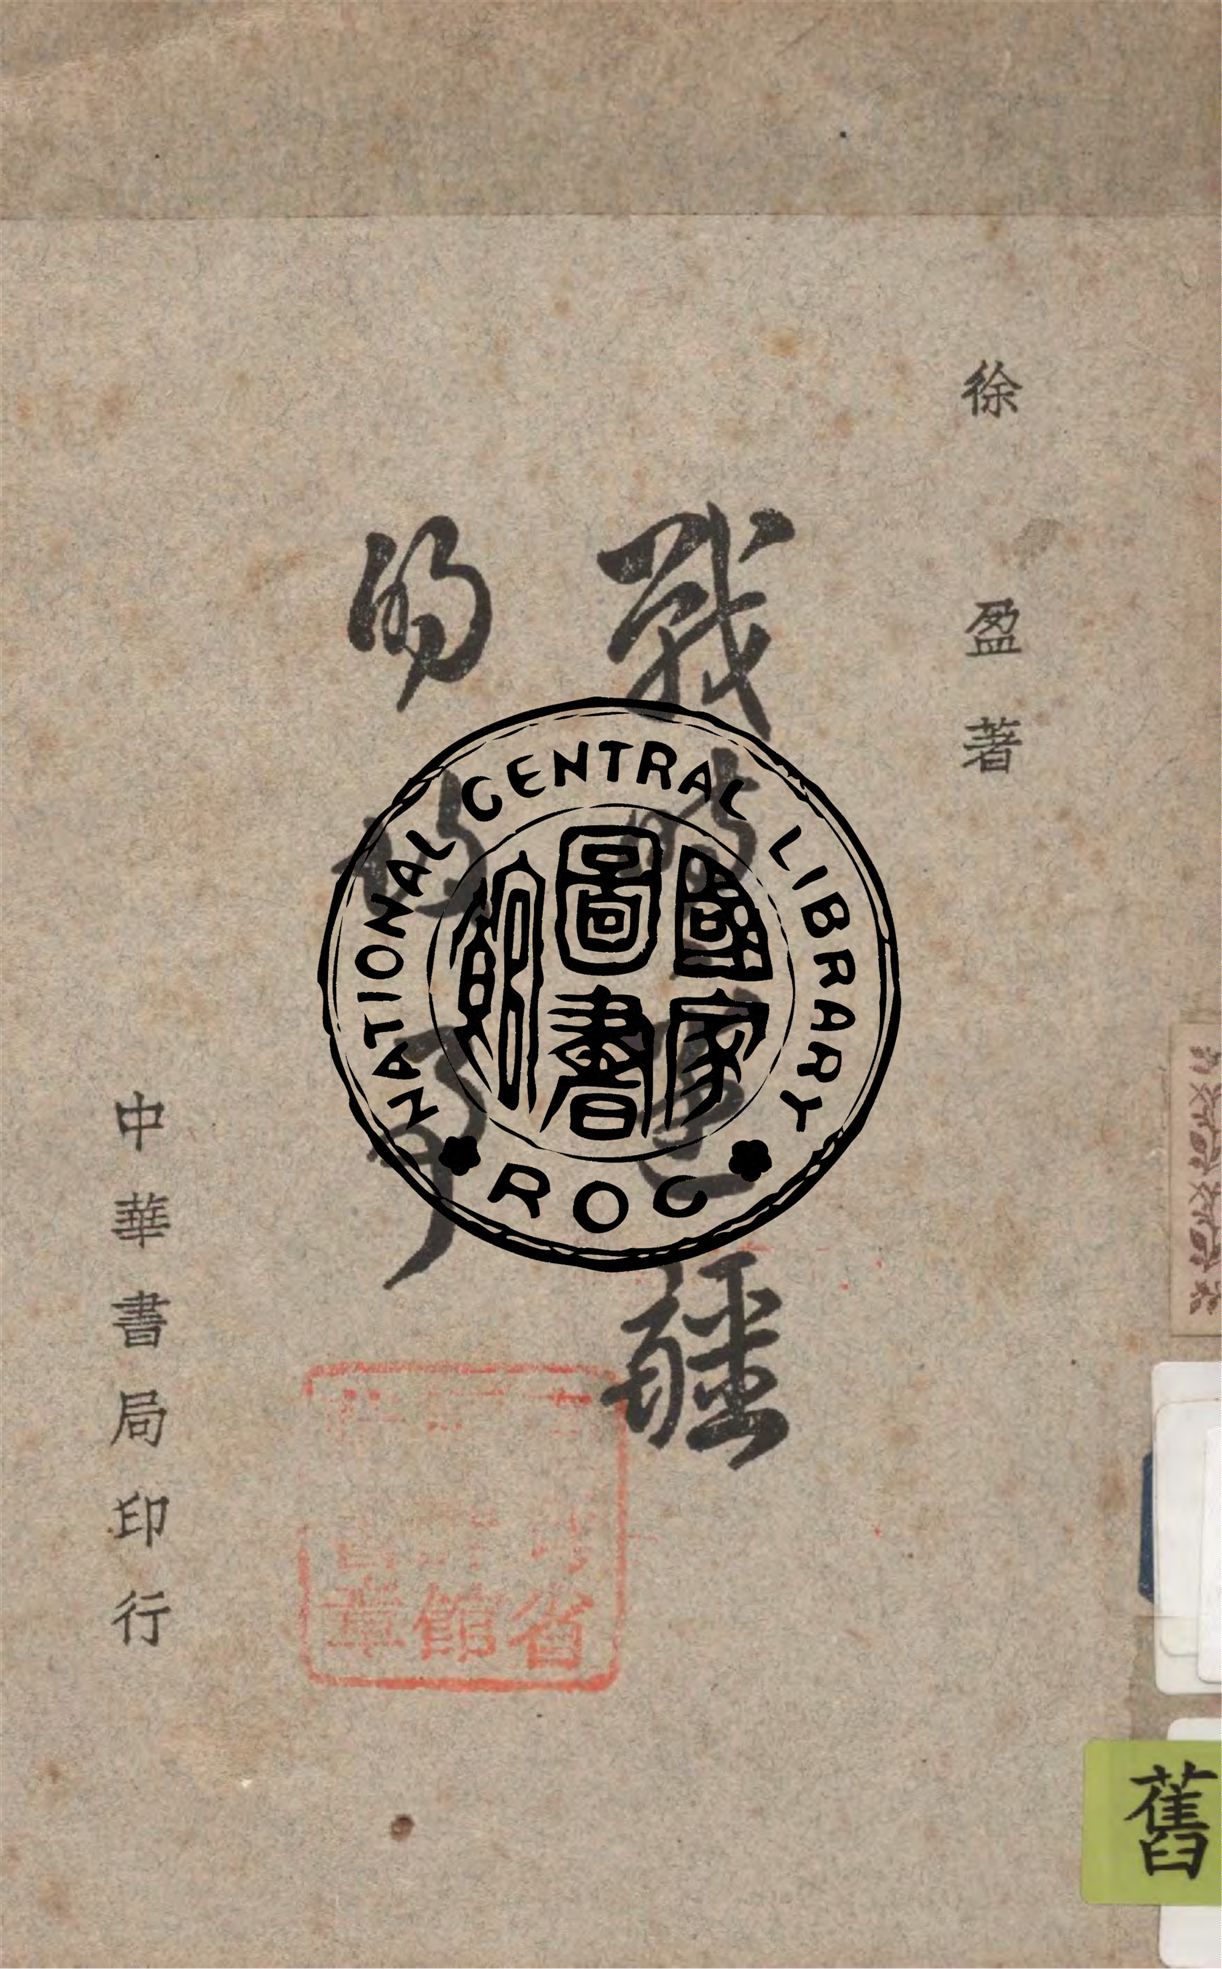 徐盈著
戰時邊疆
的故事
中華書局印行
NATIONAL CENTRAL LIBRARY
國家
圖書
館
ROC
省
館
章
舊